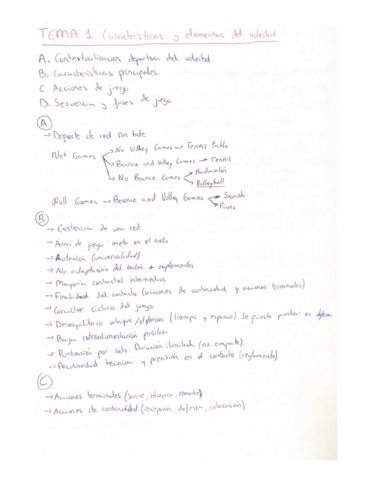 TEMA 1. Características y elementos del voleibol
A. Contextualización deportiva del voleibol
B. Características principales.
C. Acciones de juego
D. Secuencia y fases de juego
A
→ Deporte de red sin bote
Net Games
No Volley Games → Tennis table
Bounce and Volley Games → Tennis
No Bounce Games
Badminton
Volleyball
Wall Games → Bounce and Volley Games
Squash
Fives
B
→ Existencia de una red
→ Area de juego - meta en el suelo
→ Rotación (universalidad)
→ No adaptación del balón + implementos
→ Mayoría contactos intermedios
→ Finalidad del contacto (acciones de continuidad y acciones terminales)
→ Carácter cíclico del juego
→ Desequilibrio ataque/defensa (tiempo y espacio). Se puede puntuar en defensa
→ Baja retroalimentación positiva
→ Puntuación por sets. Duración ilimitada (no empate).
→ Peculiaridad técnica y precisión en el contacto (reglamento)
C
→ Acciones terminales (saque, bloqueo, remate)
→ Acciones de continuidad (recepción, defensa, colocación)